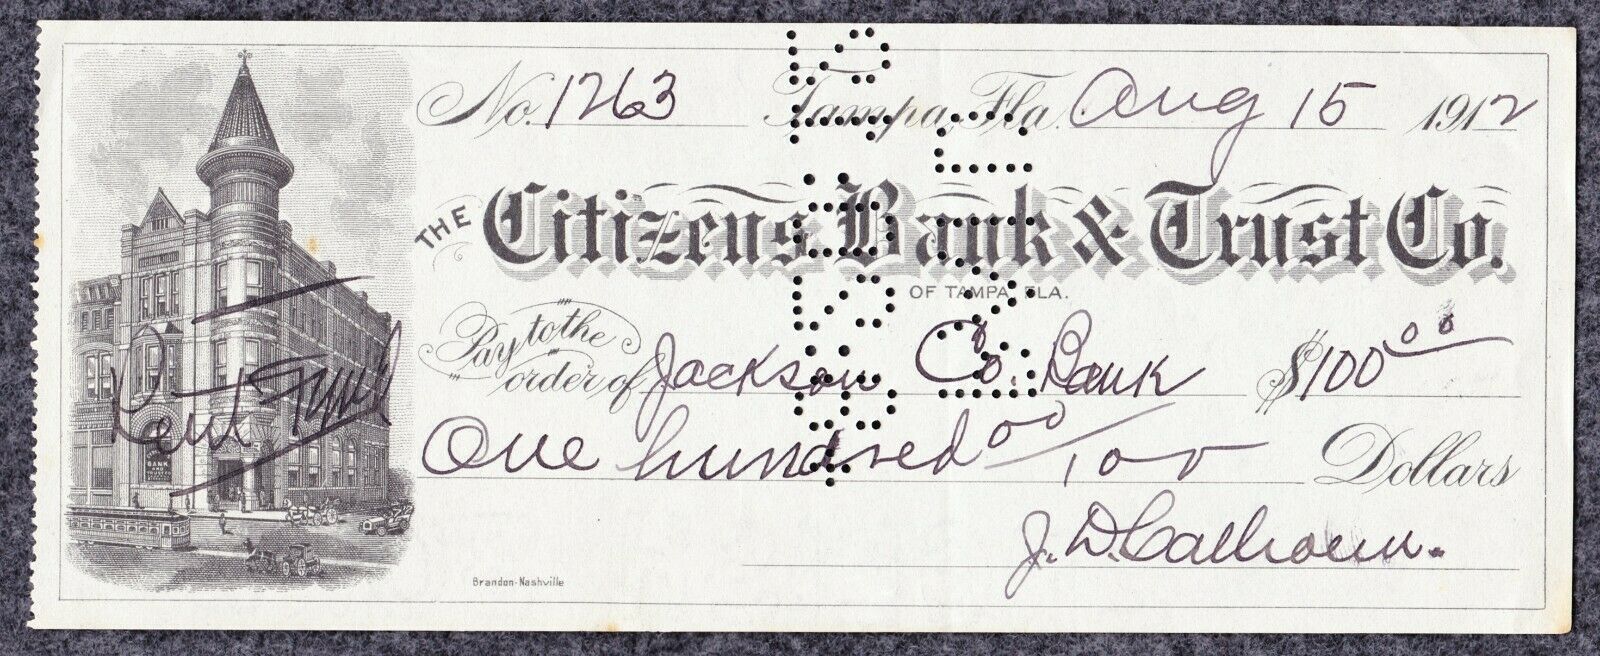 No. 1263 Tampa, Fla. Aug 15 1912
THE Citizens Bank & Trust Co.
OF TAMPA FLA.
Pay to the order of Jackson Co. Bank $100 00
One hundred 00/100 Dollars
J. D. Calhoun.
BANK AND
Brandon-Nashville